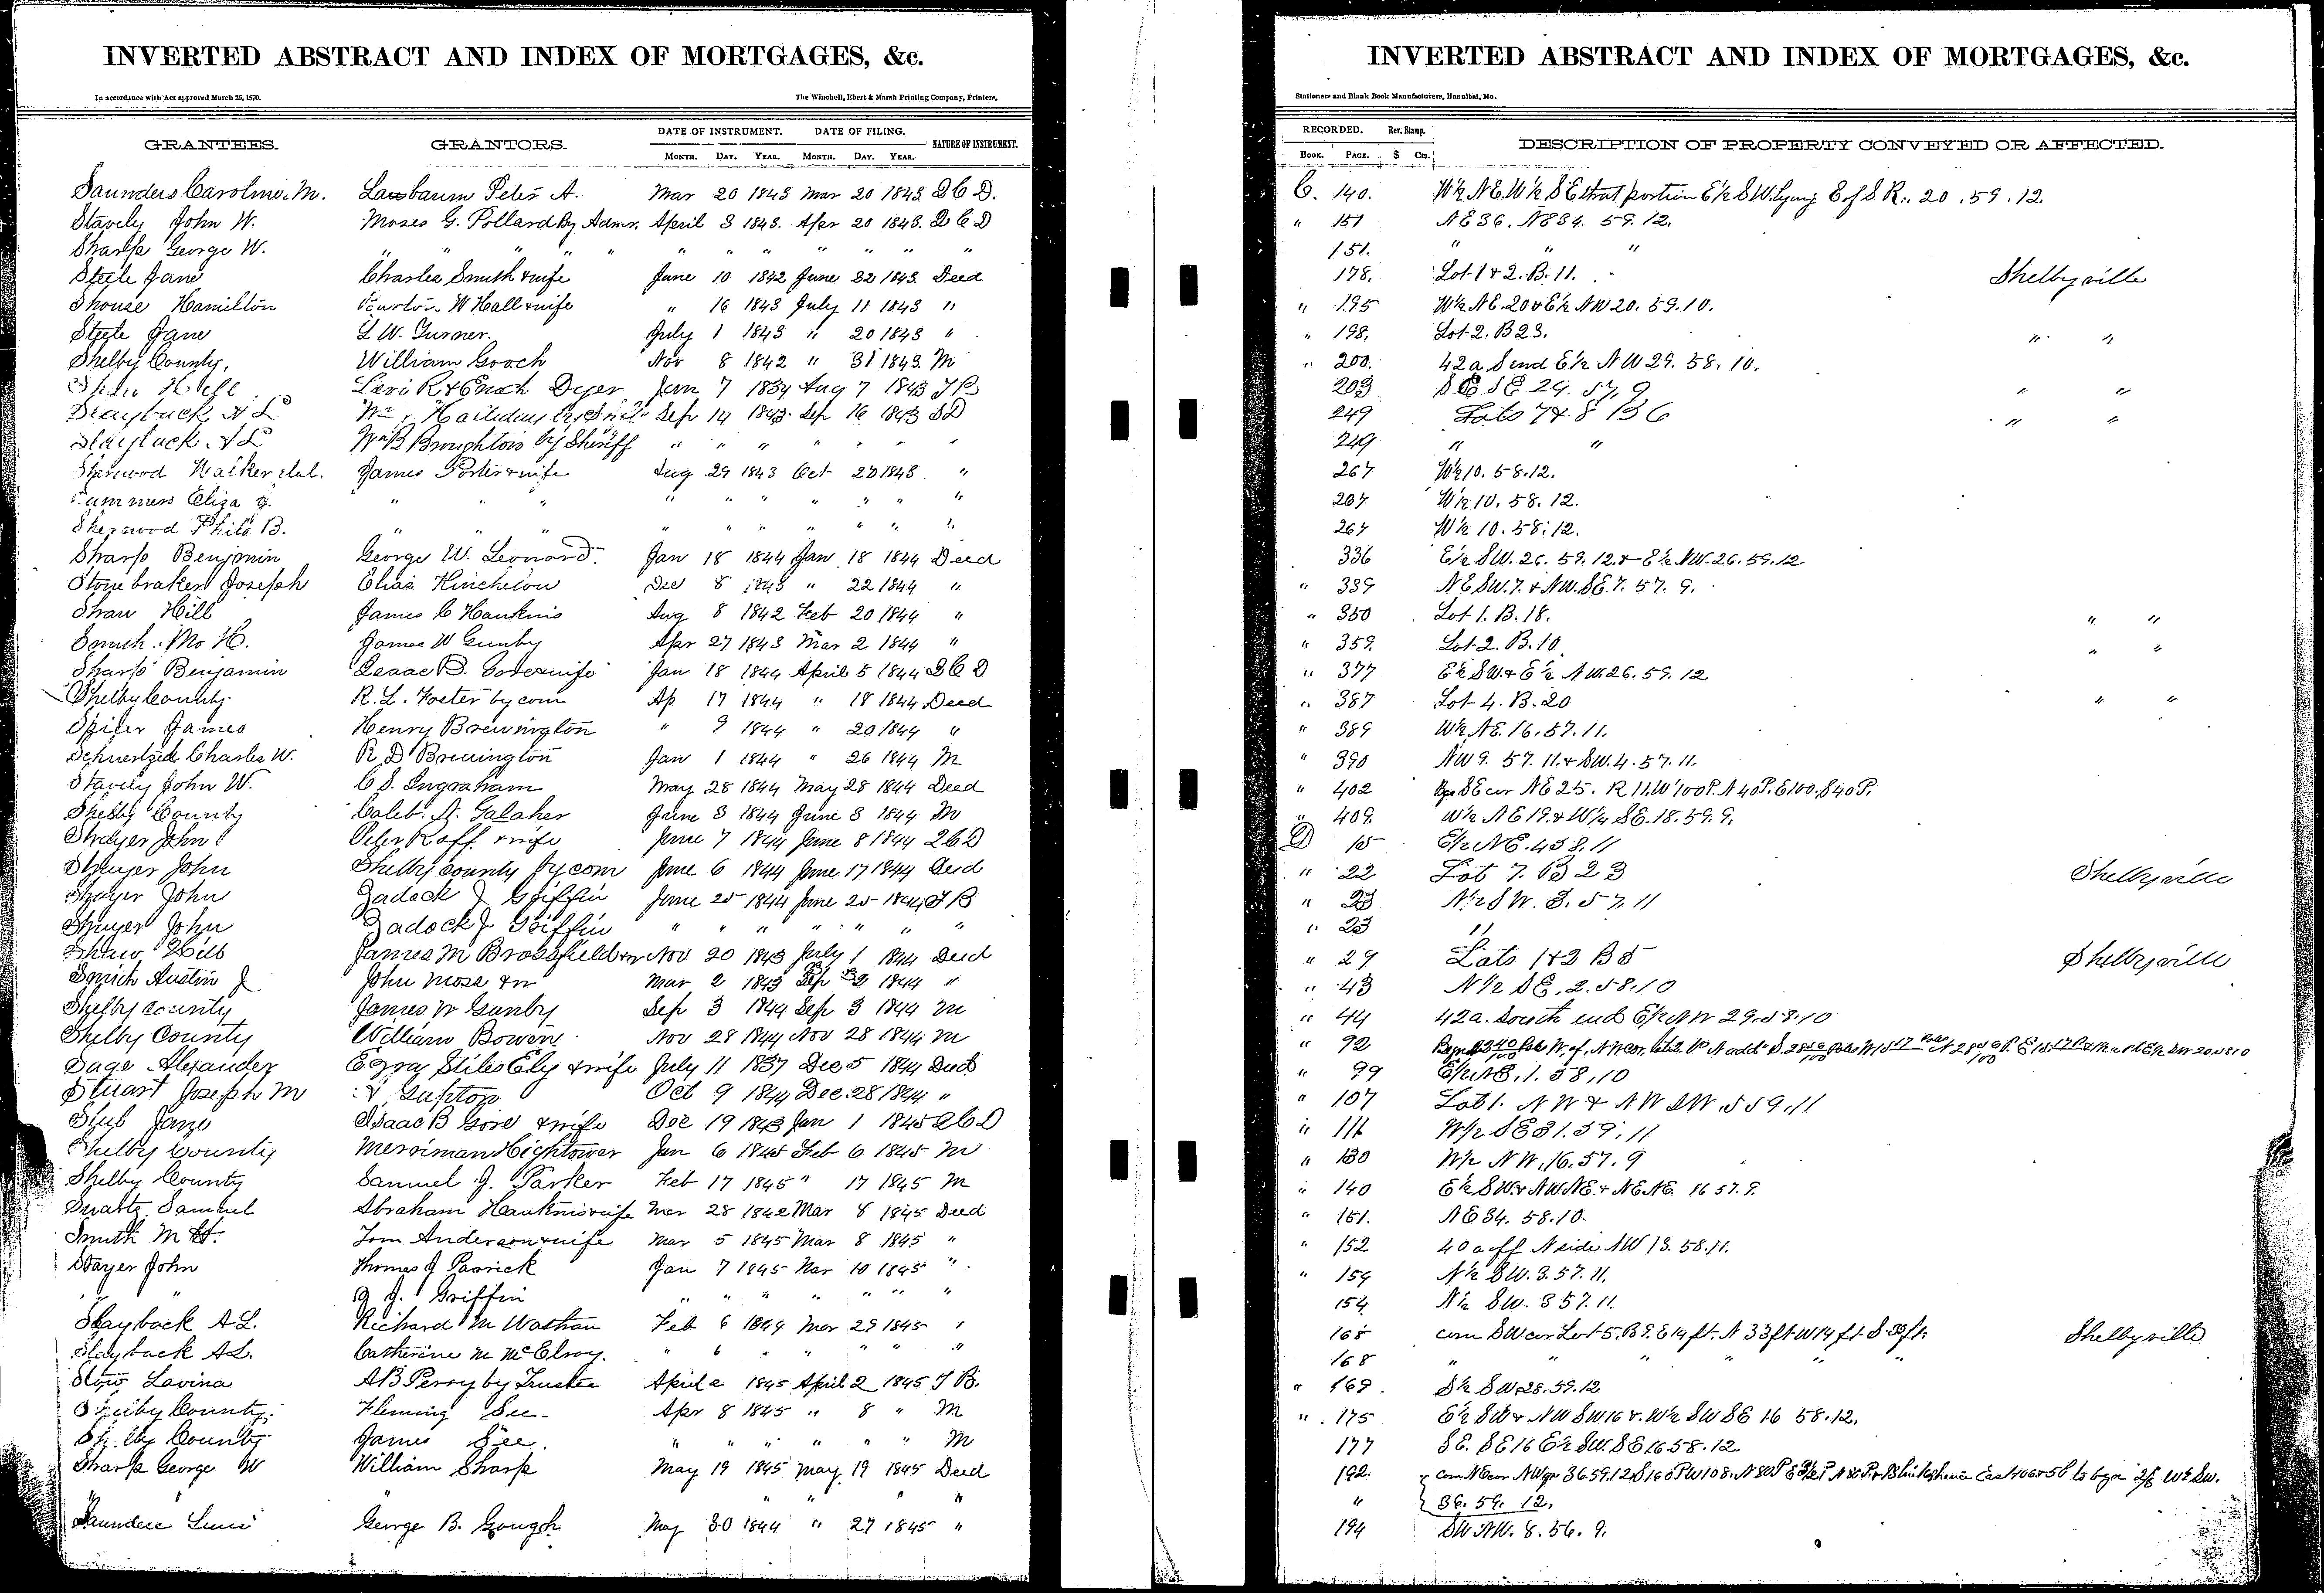 INVERTED ABSTRACT AND INDEX OF MORTGAGES, &c.
In accordance with Act approved March 25, 1870. The Winchell, Ebert & Marsh Printing Company, Printers,
DATE OF INSTRUMENT. DATE OF FILING.
GRANTEES. GRANTORS. NATURE OF INSTRUMENT.
MONTH. DAY. YEAR. MONTH. DAY. YEAR.
Saunders Caroline M. Peter A. Mar 20 1843 Mar 20 1843 D C D.
Stavely John W. Moses G. Pollard By Admr. April 3 1843. Apr 20 1843. D C D
Sharp George W. " " " " " " " " " " "
Steele Jane Charles Smith & wife June 10 1842 June 22 1843. Deed
Shouse Hamilton W Hall & wife " 16 1843 July 11 1843 "
Steele Jane L W. Turner. July 1 1843 " 20 1843 "
Shelby County, William Gooch Nov 8 1842 " 31 1843. M
Levi R & Enoch Dyer Jan 7 1834 Aug 7 1843 T B
Slayback A L Sep 14 1843. Sep 16 1843 S D
Slayback A L Wm B Broughton by Sheriff " " " " " "
Sherwood Walker et al. James Porter & wife Aug 29 1843 Oct 20 1843. "
Summers Eliza J. " " " " " " " " " "
Sherwood Philo B. " " " " " " " " " "
Sharp Benjamin George W. Leonard. Jan 18 1844 Jan 18 1844 Deed
Stonebraker Joseph Elias Hinchelow Dec 8 1843 " 22 1844 "
Shaw Hill James C Hawkins Aug 8 1842 Feb 20 1844 "
Smith. Mo H. James W Gunby Apr 27 1843 Mar 2 1844 "
Sharp Benjamin Isaac B. Gore & wife Jan 18 1844 April 5 1844 D C D
Shelby County R. L. Foster by com Ap 17 1844 " 18 1844 Deed
Spiler James Henry Brewington " 9 1844 " 20 1844 "
Charles W. R D Brewington Jan 1 1844 " 26 1844 M
Stavely John W. C S. Ingraham May 28 1844 May 28 1844 Deed
Shelby County Caleb. A. Galaher June 3 1844 June 3 1844 M
Strayer John Peter Roff & wife June 7 1844 June 8 1844 2 C D
Strayer John Shelby County by com June 6 1844 June 17 1844 Deed
Strayer John Zadock J Griffin June 25 1844 June 25 1844 T B
Strayer John Zadock J Griffin " " " " " " "
Shaw Hill James M Brossfield & w Nov 20 1843 July 1 1844 Deed
Smith Austin J. John Moss & w Mar 2 1843 Sep 1844 "
Shelby County James W Gunby Sep 3 1844 Sep 3 1844 M
Shelby County William Bowen Nov 28 1844 Nov 28 1844 M
Sage Alexander Ezra Stiles Ely & wife July 11 1837 Dec 5 1844 Deed
Stuart Joseph M Gupton Oct 9 1844 Dec. 28 1844 "
Isaac B Gore & wife Dec 19 1843 Jan 1 1845 2 C D
Shelby County Merriman Hightower Jan 6 1845 Feb 6 1845 M
Shelby County Samuel J. Parker Feb 17 1845 " 17 1845 M
Samuel Abraham Hawkins & wife Mar 28 1842 Mar 8 1845 Deed
Smith M H. Tom Anderson & wife Mar 5 1845 Mar 8 1845 "
Strayer John Thomas J Parrick Jan 7 1845 Mar 10 1845 "
" " J. Griffin " " " " " " "
Slayback A L. Richard M Wathan Feb 6 1844 Mar 29 1845 "
Slayback A L. Catherine M McElroy. " 6 " " " " "
Stow Lavina A B Perry by Trustee April 2 1845 April 2 1845 T B.
Shelby County. Fleming See. Apr 8 1845 " 8 " M
Shelby County James See. " " " " " " M
Sharp George W William Sharp May 19 1845 May 19 1845 Deed
" " "
Saunders George B. Gough May 30 1844 " 27 1845 "
INVERTED ABSTRACT AND INDEX OF MORTGAGES, &c.
Stationers and Blank Book Manufacturers, Hannibal, Mo.
RECORDED. Rev. Stamp.
DESCRIPTION OF PROPERTY CONVEYED OR AFFECTED.
BOOK. PAGE. $ Cts.
C. 140. W½ N.E. W½ S E that portion E½ S W. Lying E of S R.. 20 . 59 . 12.
" 151 N E 36. N E 34. 59. 12.
151. " " "
178. Lot 1 & 2. B. 11. Shelbyville
" 195 W½ N E. 20 & E½ N W 20. 59. 10.
" 198. Lot 2. B 23. " "
" 200. 42 a S end E½ N W 29. 58. 10.
203 S E S E 24. 57, 9 " "
249 Lots 7 & 8 B 6 " "
249 " "
267 W½ 10. 58. 12.
267 W½ 10. 58. 12.
267 W½ 10. 58. 12.
336 E½ S W. 26. 59. 12. & E½ N W. 26. 59. 12
" 339 N E S W. 7. & N W. S E. 7. 57. 9.
" 350 Lot 1. B. 18. " "
" 359. Lot 2. B. 10 " "
" 377 E½ S W. & E½ N W. 26. 59. 12
" 387 Lot 4. B. 20 " "
" 389 W½ N E. 16. 57. 11.
" 390 N W 9. 57. 11. & S W. 4. 57. 11.
" 402 S E cor N E 25. R 11. W 100 P. N 40 P. E 100. S 40 P.
" 409. W½ N E 19. & W½ S E. 18. 59. 9.
D 15 E½ N E. 4 5 8. 11
" 22 Lot 7. B 2 3 Shelbyville
" 23 N½ S W. 3. 57. 11
" 23 "
" 29 Lots 1 & 2 B 5 Shelbyville
" 43 N½ S E. 2. 58. 10
" 44 42 a. South end E½ N W 29. 58. 10
" 92
" 99 E½ N E. 1. 58. 10
" 107 Lot 1. N W & N W S W. 5 59. 11
" 111 W½ S E 31. 59. 11
" 130 W½ N W. 16. 57. 9
" 140 E½ S W. & N W N E. & N E N E. 16 57. 9.
" 151. N E 34. 58. 10.
" 152 40 a off N side N W 13. 58. 11.
" 154 N½ S W. 3. 57. 11.
154 N½ S W. 3 57. 11.
168 com S W cor Lot 5. B 9. E 14 ft. N 33 ft W 14 ft. S. 33 ft. Shelbyville
168 " " " " " "
" 169. S½ S W. 28. 59. 12
" 175 E½ S W & N W S W 16 & W½ S W S E 16 58. 12.
177 S E. S E 16 E½ S W. S E 16 58. 12.
192. com N E cor N W qr 36. 59. 12
" 36. 59. 12.
194 S W N W. 8. 56. 9.